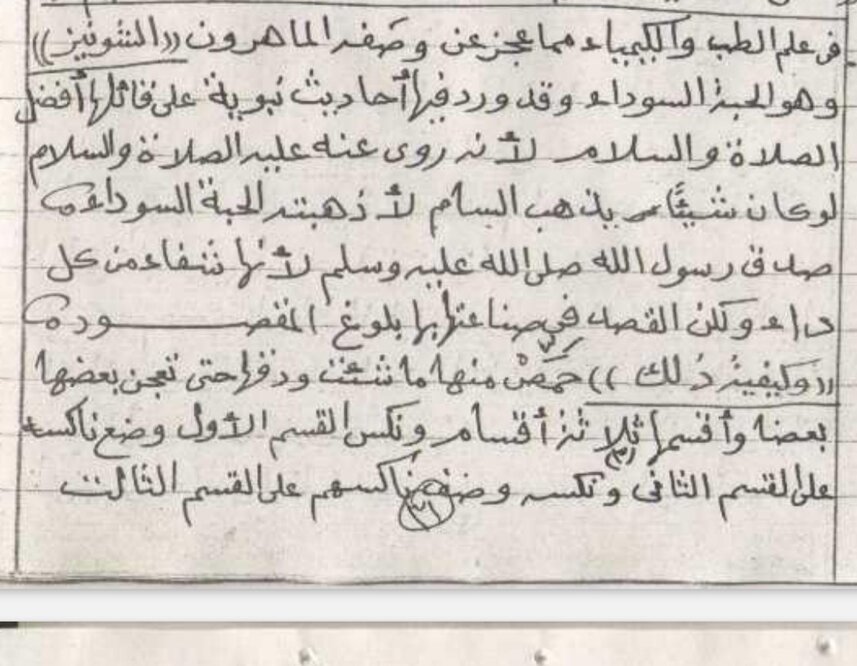 فى علم الطب والكيمياء مما عجز عن وصفه الماهرون ((الشونيز))
وهو الحبة السوداء وقد ورد فيها أحاديث نبوية على قائلها أفضل
الصلاة والسلام لأنه روى عنه عليه الصلاة والسلام
لو كان شيئًا يذهب السام لأذهبته الحبة السوداء
صدق رسول الله صلى الله عليه وسلم لأنها شفاء من كل
داء ولكن القصد فى صناعتها بلوغ المقصود
((وكيفية ذلك)) حَمِّصْ منها ما شئت ودقها حتى تعجن بعضها
بعضا وأقسمها ثلاثة أقسام ونكس القسم الأول وضع ناكسه
على القسم الثانى ونكسه وضف ناكسهم على القسم الثالث